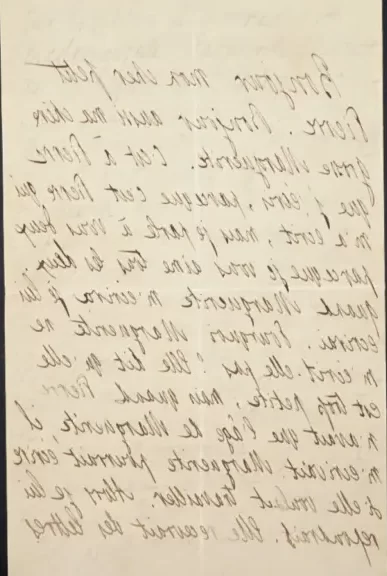 Bonjour mon cher petit
Pierre. Bonjour aussi ma chère
grosse Marguerite. C'est à Pierre
que j'écris, parce que c'est Pierre qui
m'a écrit, mais je parle à vous deux
parce que je vous aime tous les deux,
quand Marguerite m'écrira je lui
écrirai. Pourquoi Marguerite ne
m'écrit-elle pas? Elle dit qu'elle
est trop petite, mais quand Pierre
n'avait que l'âge de Marguerite, il
m'écrivait. Marguerite pourrait écrire
si elle voulait travailler. Alors je lui
répondrais. Elle recevrait des lettres